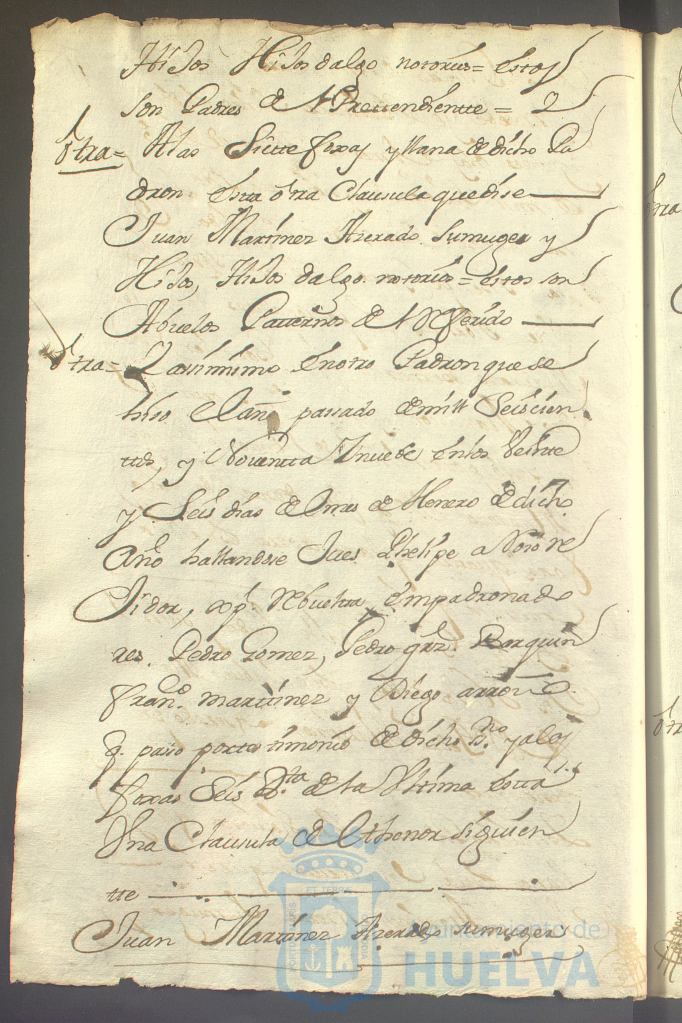 Hijos Hijos dalgo notorios = estos
son Padres de el Pretendientte = 2
ôtra = Alas Siette foxas y llana de dicho Pa
dron esta ôtra Clausula que dise
Juan Martinez Hurado su muger y
Hijos, Hijos dalgo notorios = estos son
Abuelos Patternos de el Referido
ôtra = Y asimismo en otro Padron que se
hiso el año pasado de mill Seiscien
ttos, y Noventta y nuebe en los Veinte
y Seis dias de el mes de Henero de dicho
año hallandose Jues Phelipe
Jidor, empadronado
res. Pedro Gomez, Pedro grz.
fran.co martinez y Diego
q. paso por testimonio de dicho y alas
foxas Seis de la Ultima esta
Una Clausula de el thenor siguien
tte
Juan Martinez su muger
Ayuntamiento de
HUELVA